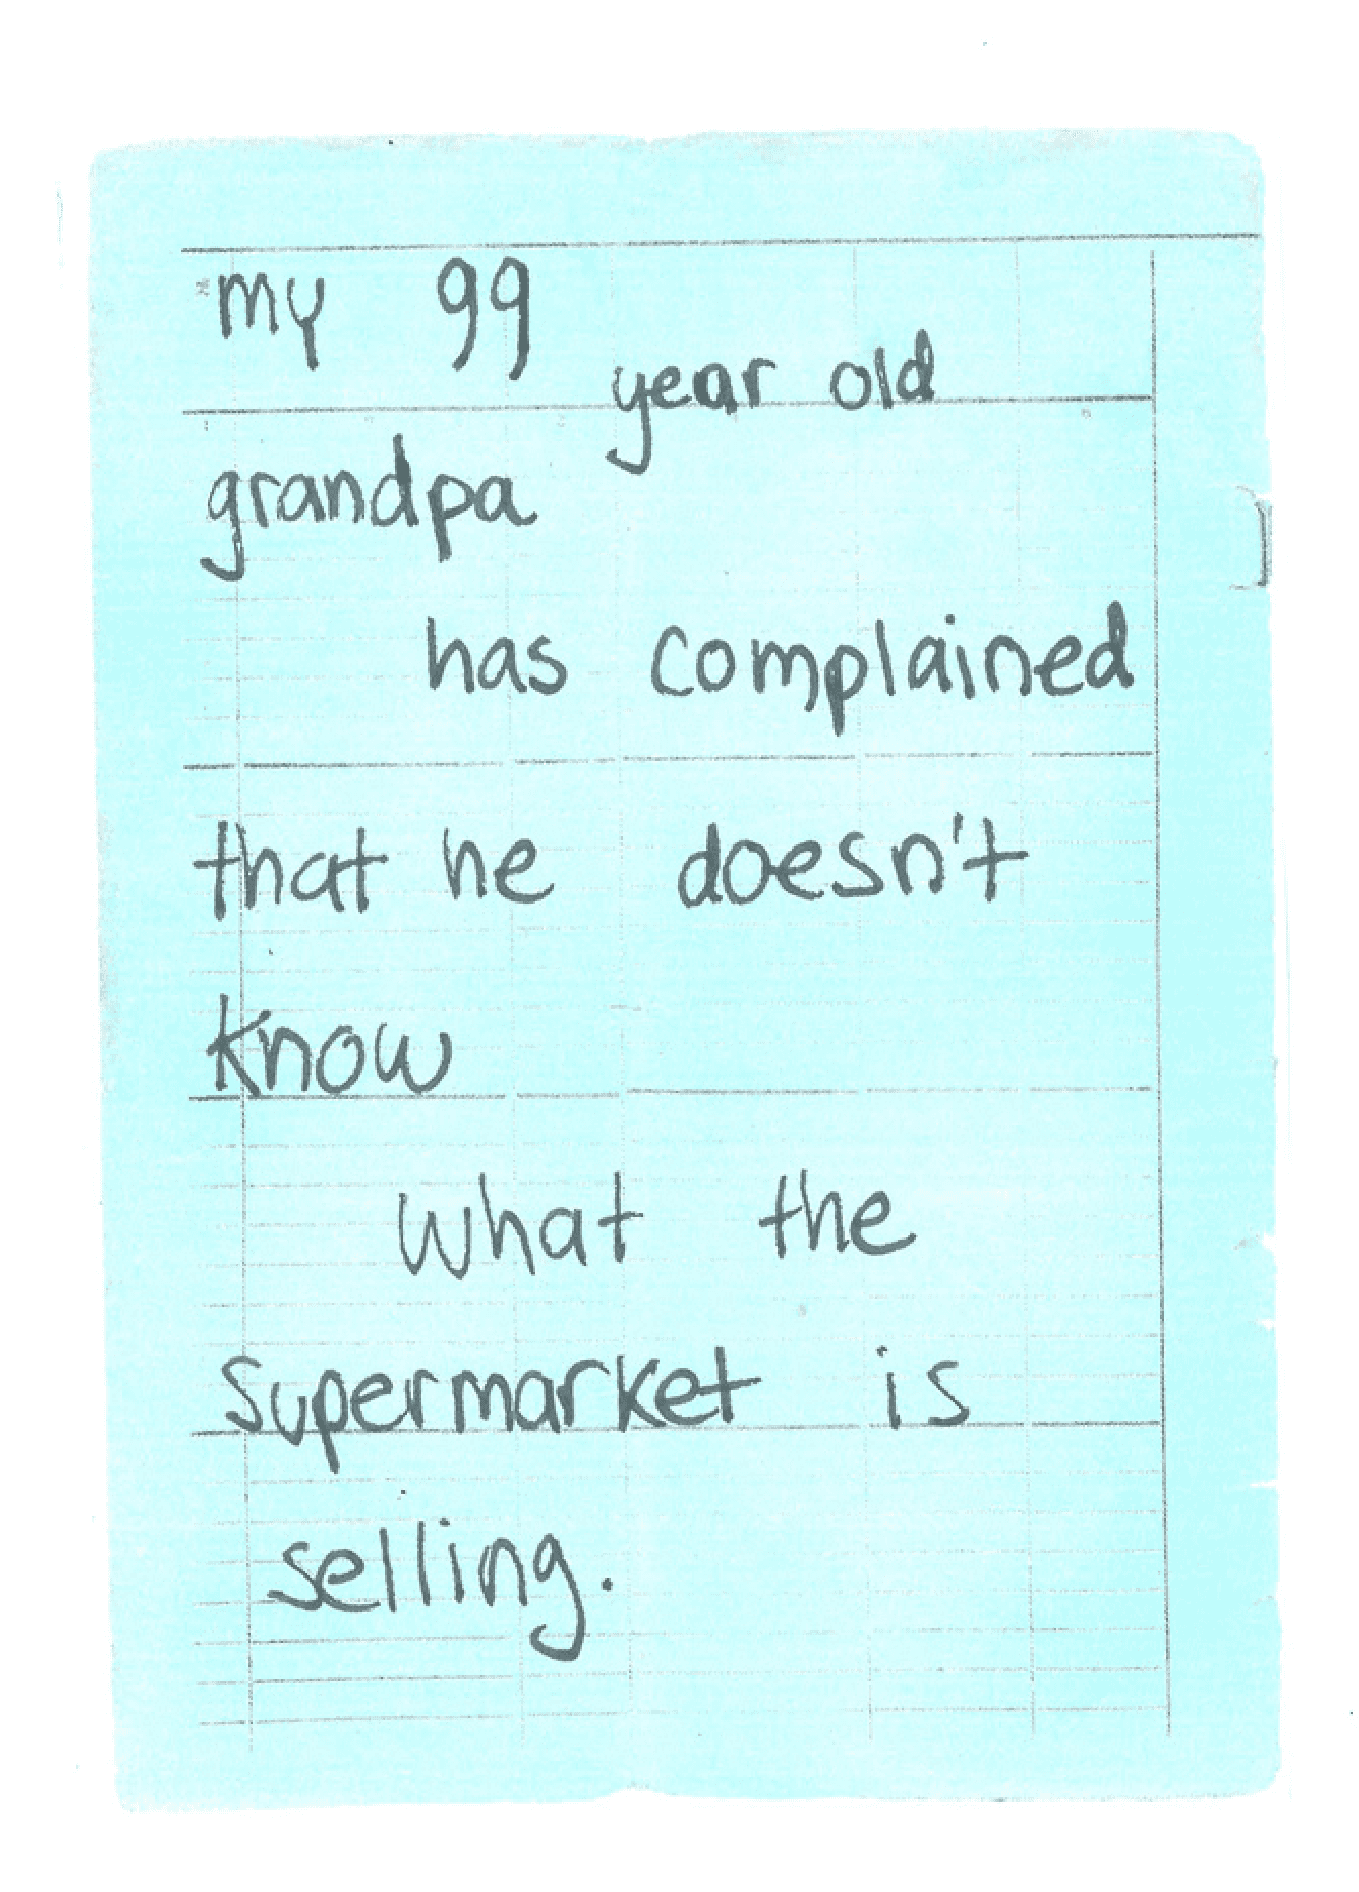 my 99
year old
grandpa
has complained
that he doesn't
know
what the
supermarket is
selling.